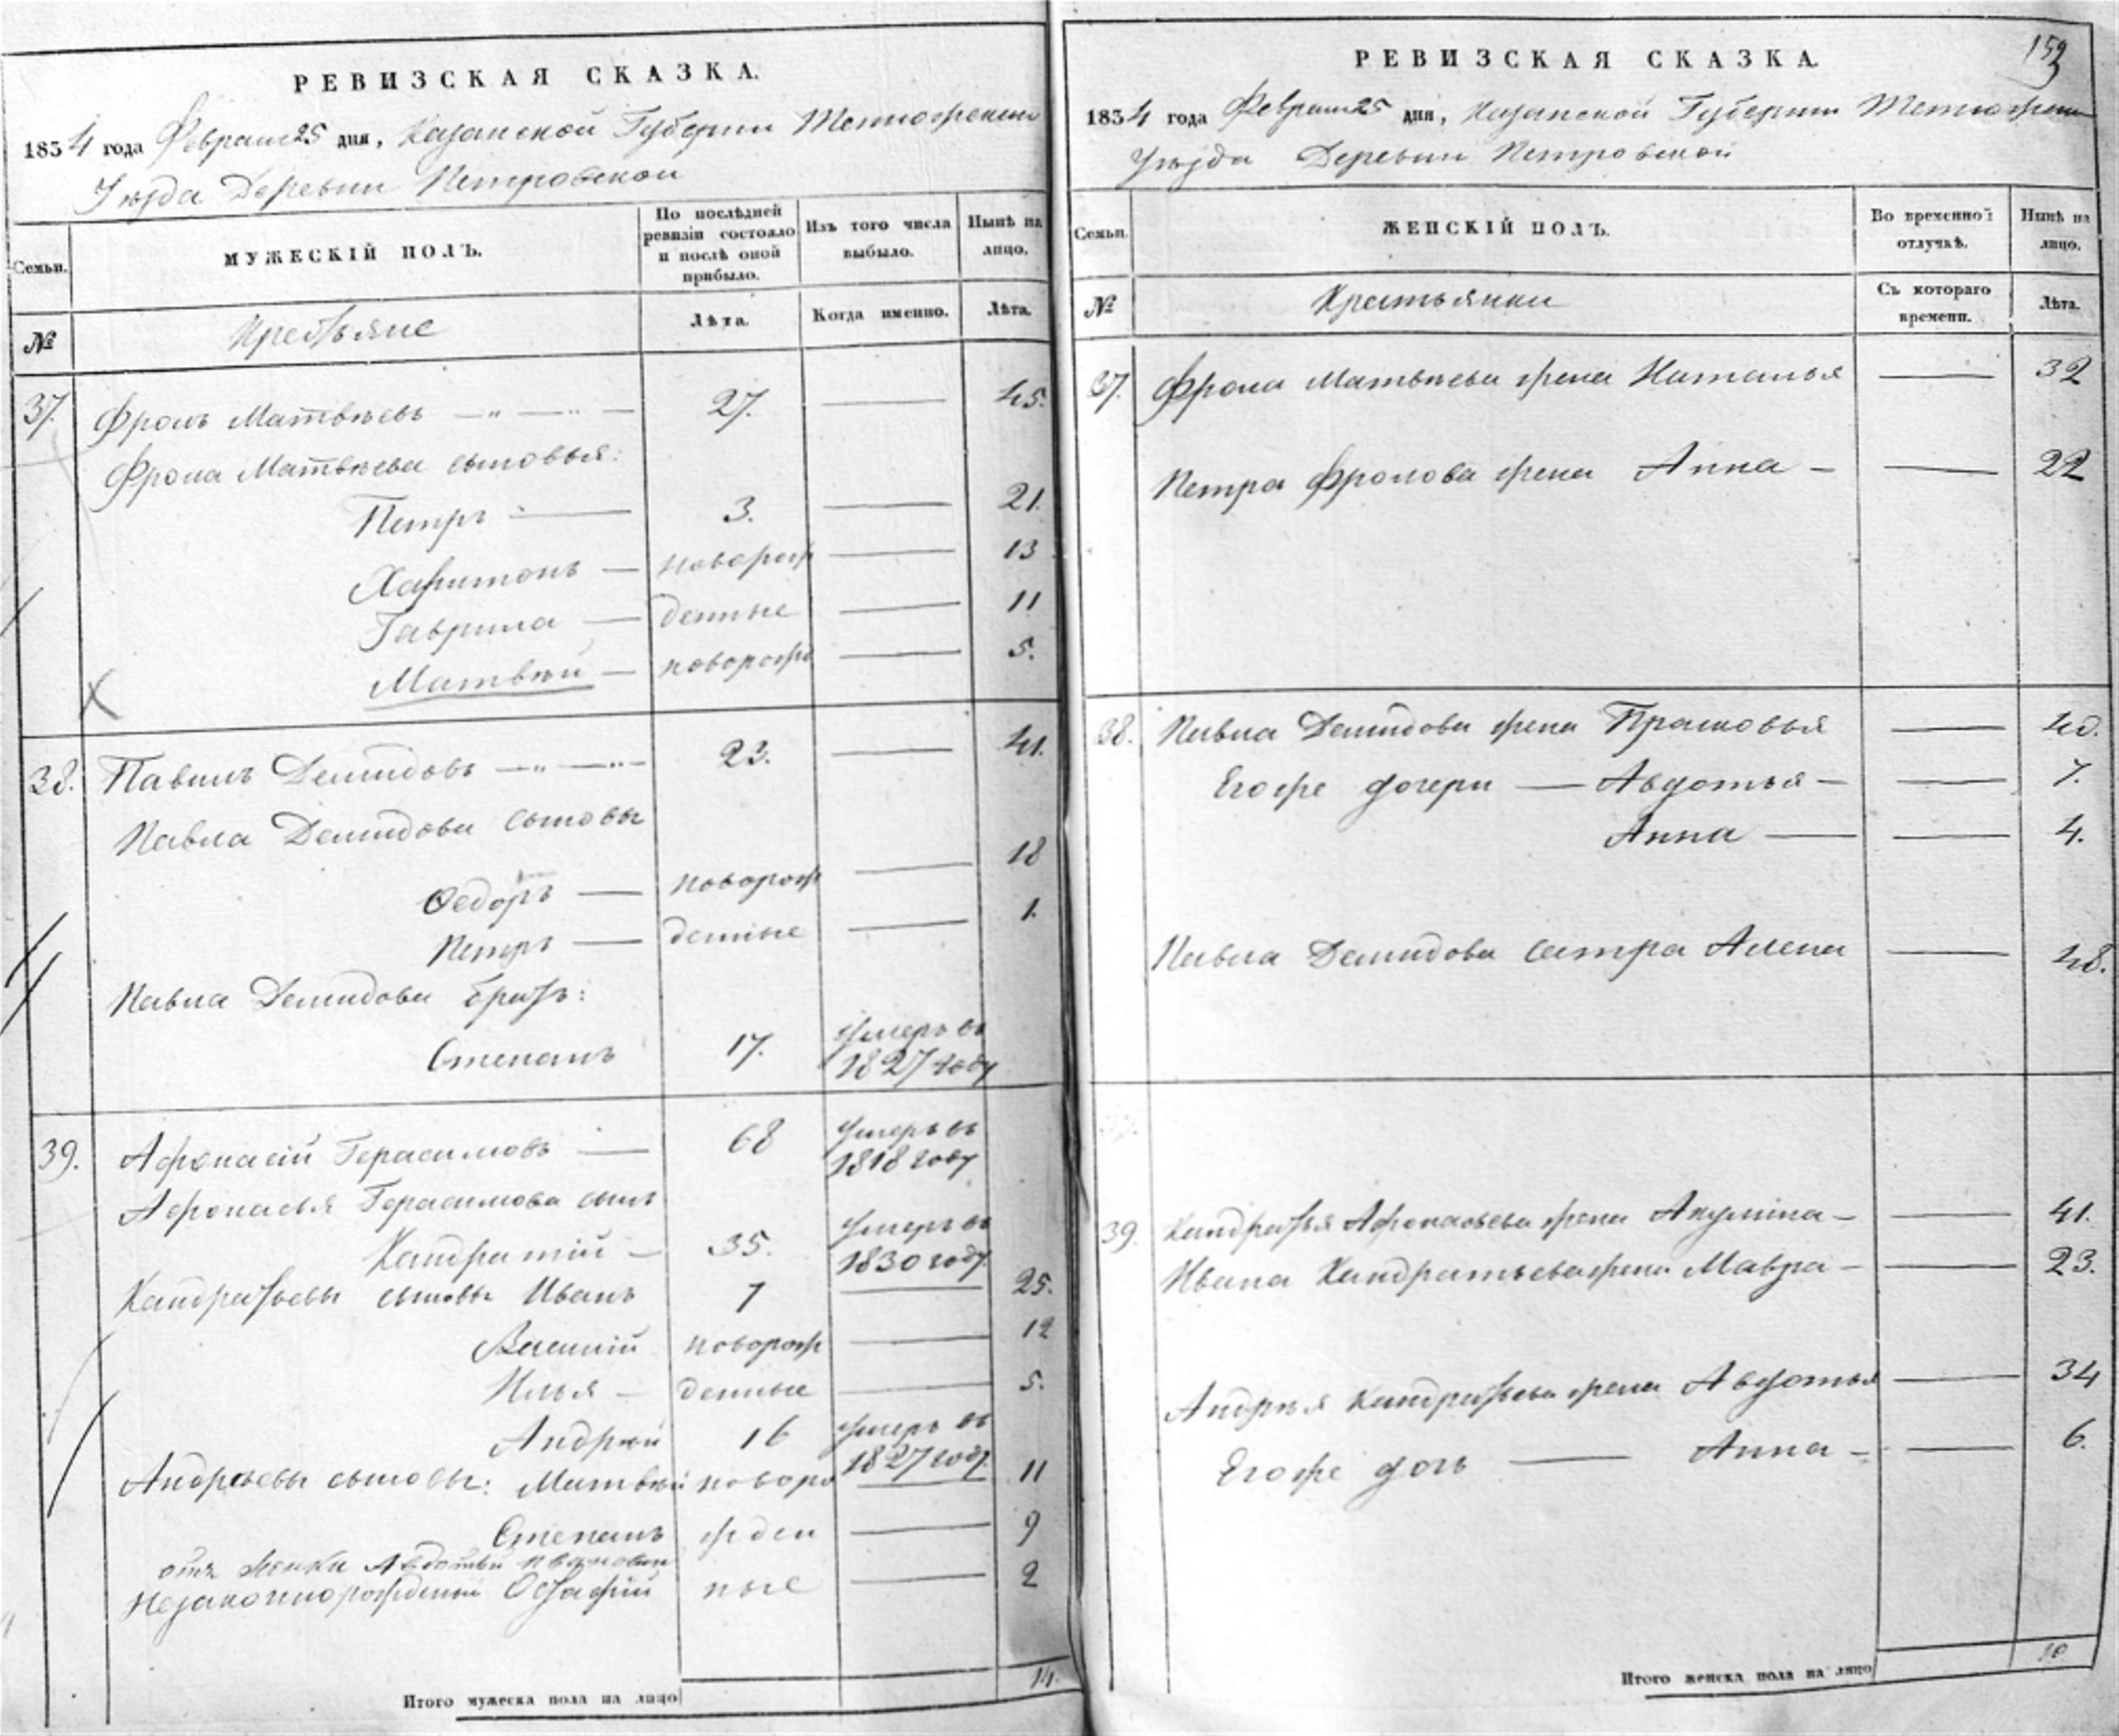 РЕВИЗСКАЯ СКАЗКА.
1834 года Февраля 25 дня, Казанской Губернии
Уезда Деревни Петровской
Семьи.
МУЖЕСКІЙ ПОЛЪ.
По послѣдней ревизіи состояло и послѣ оной прибыло.
Изъ того числа выбыло.
Нынѣ на лицо.
№
Крестьяне
Лѣта.
Когда именно.
Лѣта.
37. Фролъ Матвѣевъ 27. 45.
Фрола Матвѣева сыновья:
Петръ 3. 21.
Харитонъ новорож 13
Гаврила денные 11
Матвѣй новорож 5.
38. Павелъ Демидовъ 23. 41.
Павла Демидова сыновья
Ѳедоръ новорож 18
Петръ денные 1.
Павла Демидова братъ:
Степанъ 17. умеръ въ 1827 году
39. Афонасій Герасимовъ 68 умеръ въ 1818 году
Афонасья Герасимова сынъ
Кандратій 35. умеръ въ 1830 году
Кандратьевы сыновья Иванъ 7 25.
Василій новорож 12
Илья денные 5.
Андрей 16 умеръ въ 1827 году
Андреевы сыновья: Матвѣй новоро 11
Степанъ жден 9
отъ женки Авдотьи Ивановой
Незаконнорожденный ные 2
Итого мужеска пола на лицо 14.
РЕВИЗСКАЯ СКАЗКА.
1834 года Февраля 25 дня, Казанской Губернии
Уѣзда Деревни Петровской
Семьи.
ЖЕНСКІЙ ПОЛЪ.
Во временной отлучкѣ.
Нынѣ на лицо.
№
Крестьянки
Съ котораго времени.
Лѣта.
37. Фрола Матвѣева жена Наталья 32
Петра Фролова жена Анна 22
38. Павла Демидова жена Прасковья 40.
Его же дочери Авдотья 7.
Анна 4.
Павла Демидова сестра Алена 48.
39. Кандратья Афонасьева жена Акулина 41.
Ивана Кандратьева жена Мавра 23.
Андрея Кандратьева жена Авдотья 34
Его же дочь Анна 6.
Итого женска пола на лицо 10